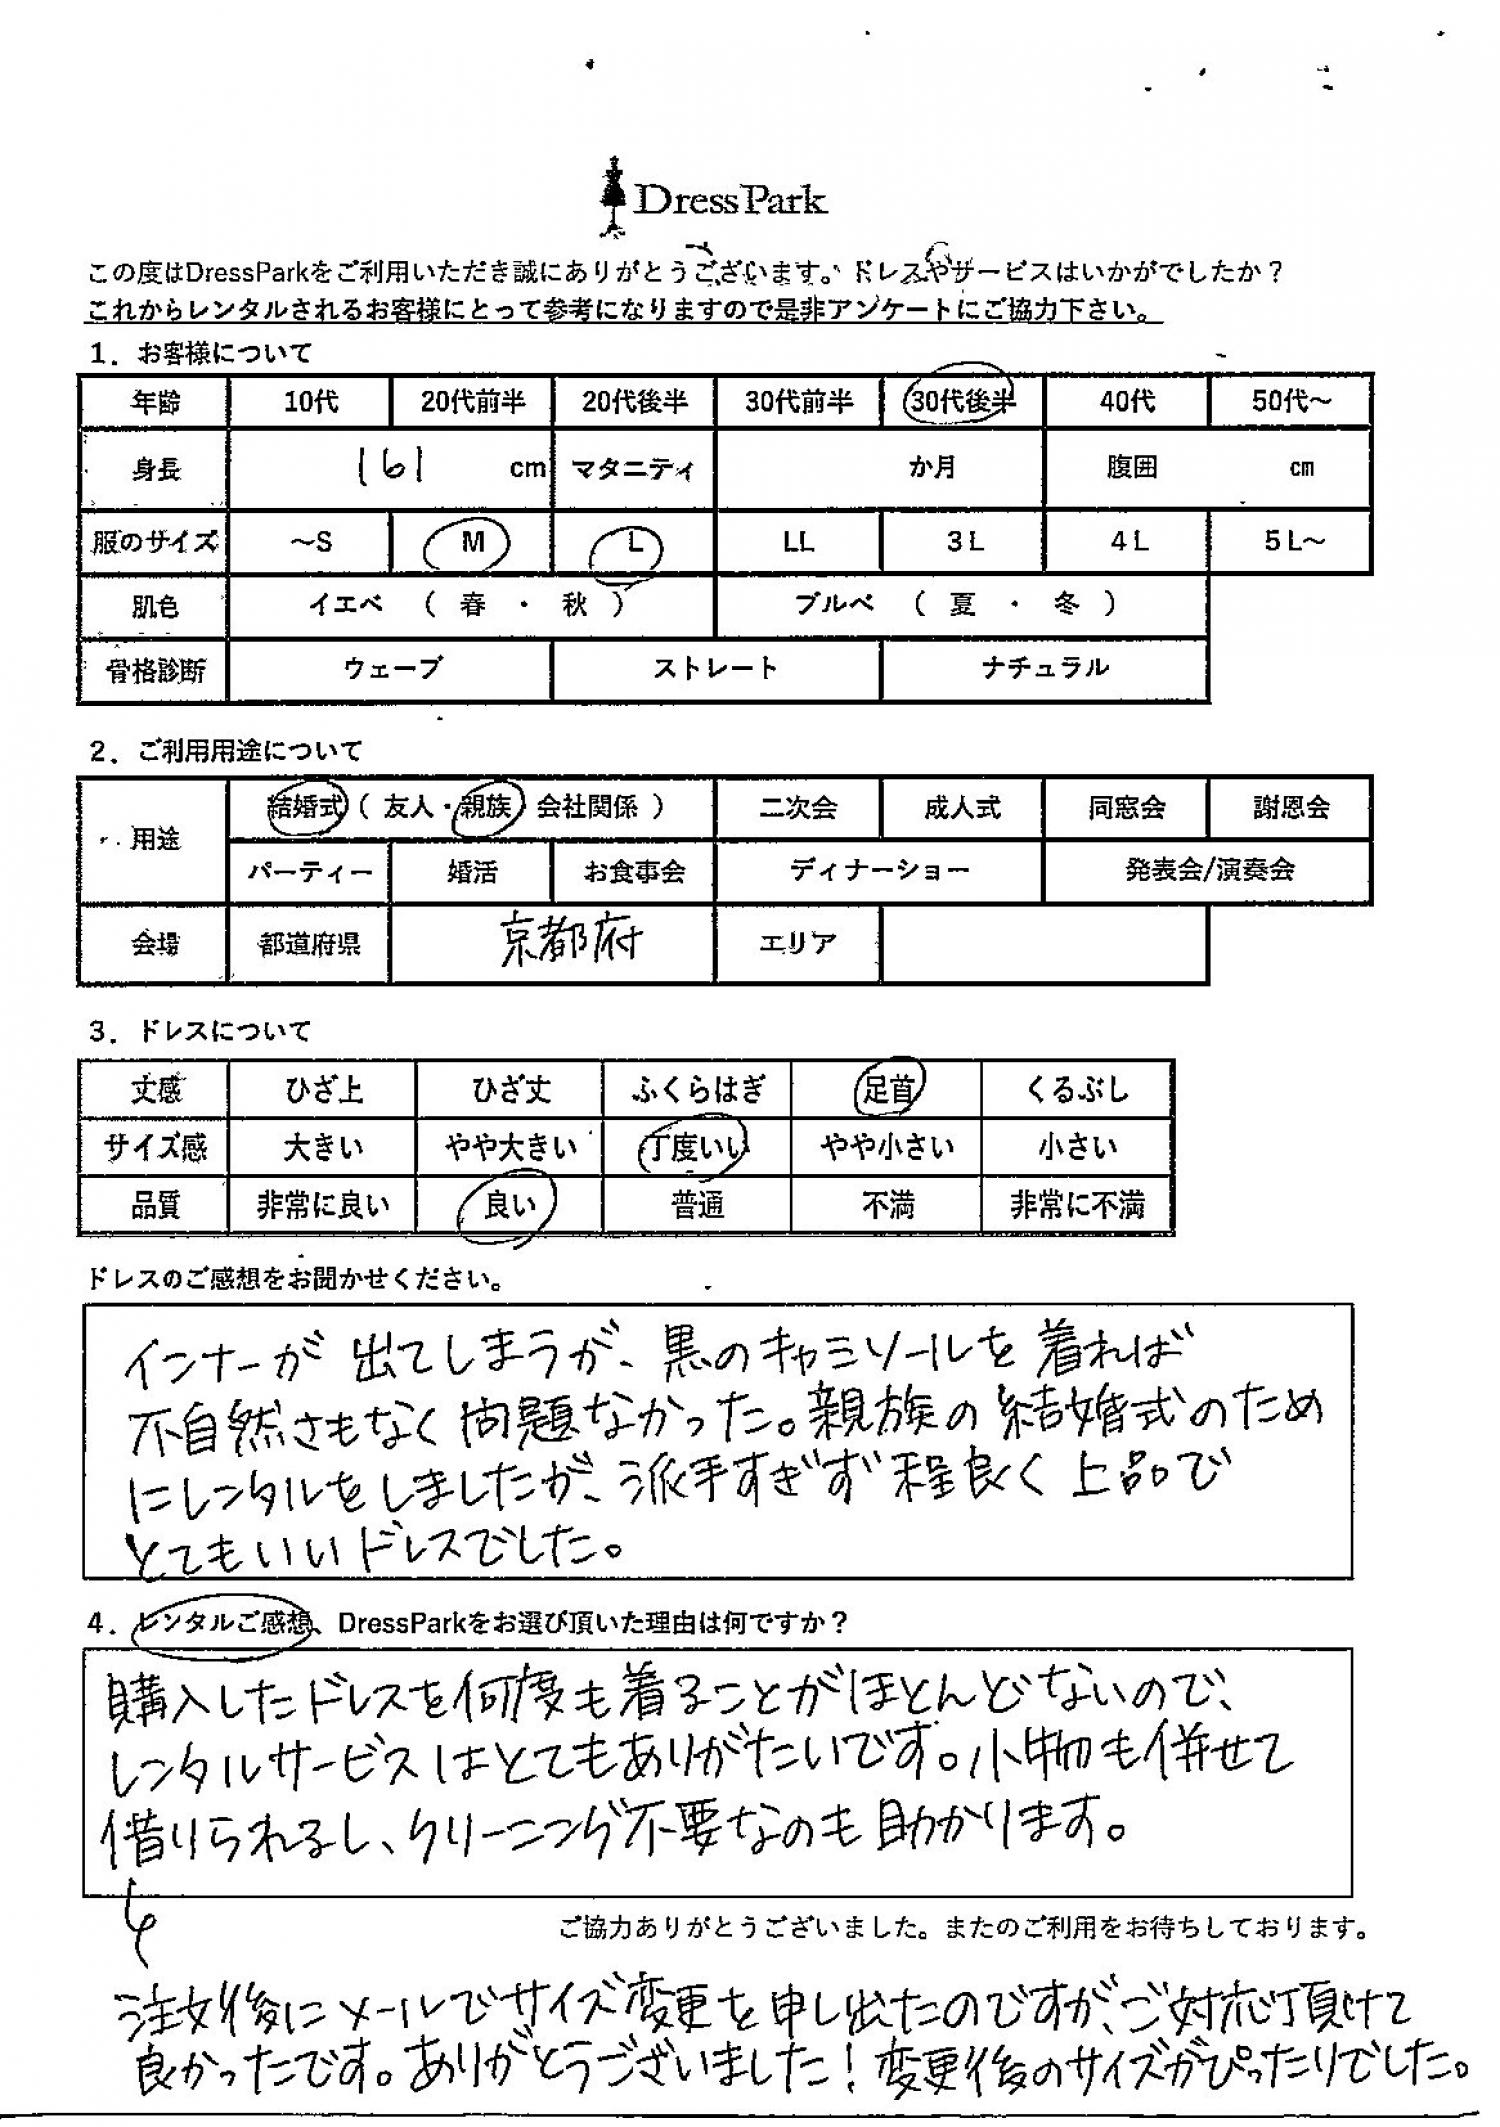 DressPark
この度はDressParkをご利用いただき誠にありがとうございます。ドレスやサービスはいかがでしたか？
これからレンタルされるお客様にとって参考になりますので是非アンケートにご協力下さい。
1．お客様について
年齢 10代 20代前半 20代後半 30代前半 30代後半 40代 50代～
身長 161 cm マタニティ か月 腹囲 cm
服のサイズ ～S M L LL 3L 4L 5L～
肌色 イエベ （ 春 ・ 秋 ） ブルベ （ 夏 ・ 冬 ）
骨格診断 ウェーブ ストレート ナチュラル
2．ご利用用途について
用途 結婚式（ 友人・親族・会社関係 ） 二次会 成人式 同窓会 謝恩会
パーティー 婚活 お食事会 ディナーショー 発表会/演奏会
会場 都道府県 京都府 エリア
3．ドレスについて
丈感 ひざ上 ひざ丈 ふくらはぎ 足首 くるぶし
サイズ感 大きい やや大きい 丁度いい やや小さい 小さい
品質 非常に良い 良い 普通 不満 非常に不満
ドレスのご感想をお聞かせください。
インナーが出てしまうが、黒のキャミソールを着れば
不自然さもなく問題なかった。親族の結婚式のため
にレンタルをしましたが、派手すぎず程良く上品で
とてもいいドレスでした。
4．レンタルご感想、DressParkをお選び頂いた理由は何ですか？
購入したドレスを何度も着ることがほとんどないので、
レンタルサービスはとてもありがたいです。小物も併せて
借りられるし、クリーニング不要なのも助かります。
ご協力ありがとうございました。またのご利用をお待ちしております。
注文後にメールでサイズ変更を申し出たのですが、ご対応頂けて
良かったです。ありがとうございました！変更後のサイズがぴったりでした。